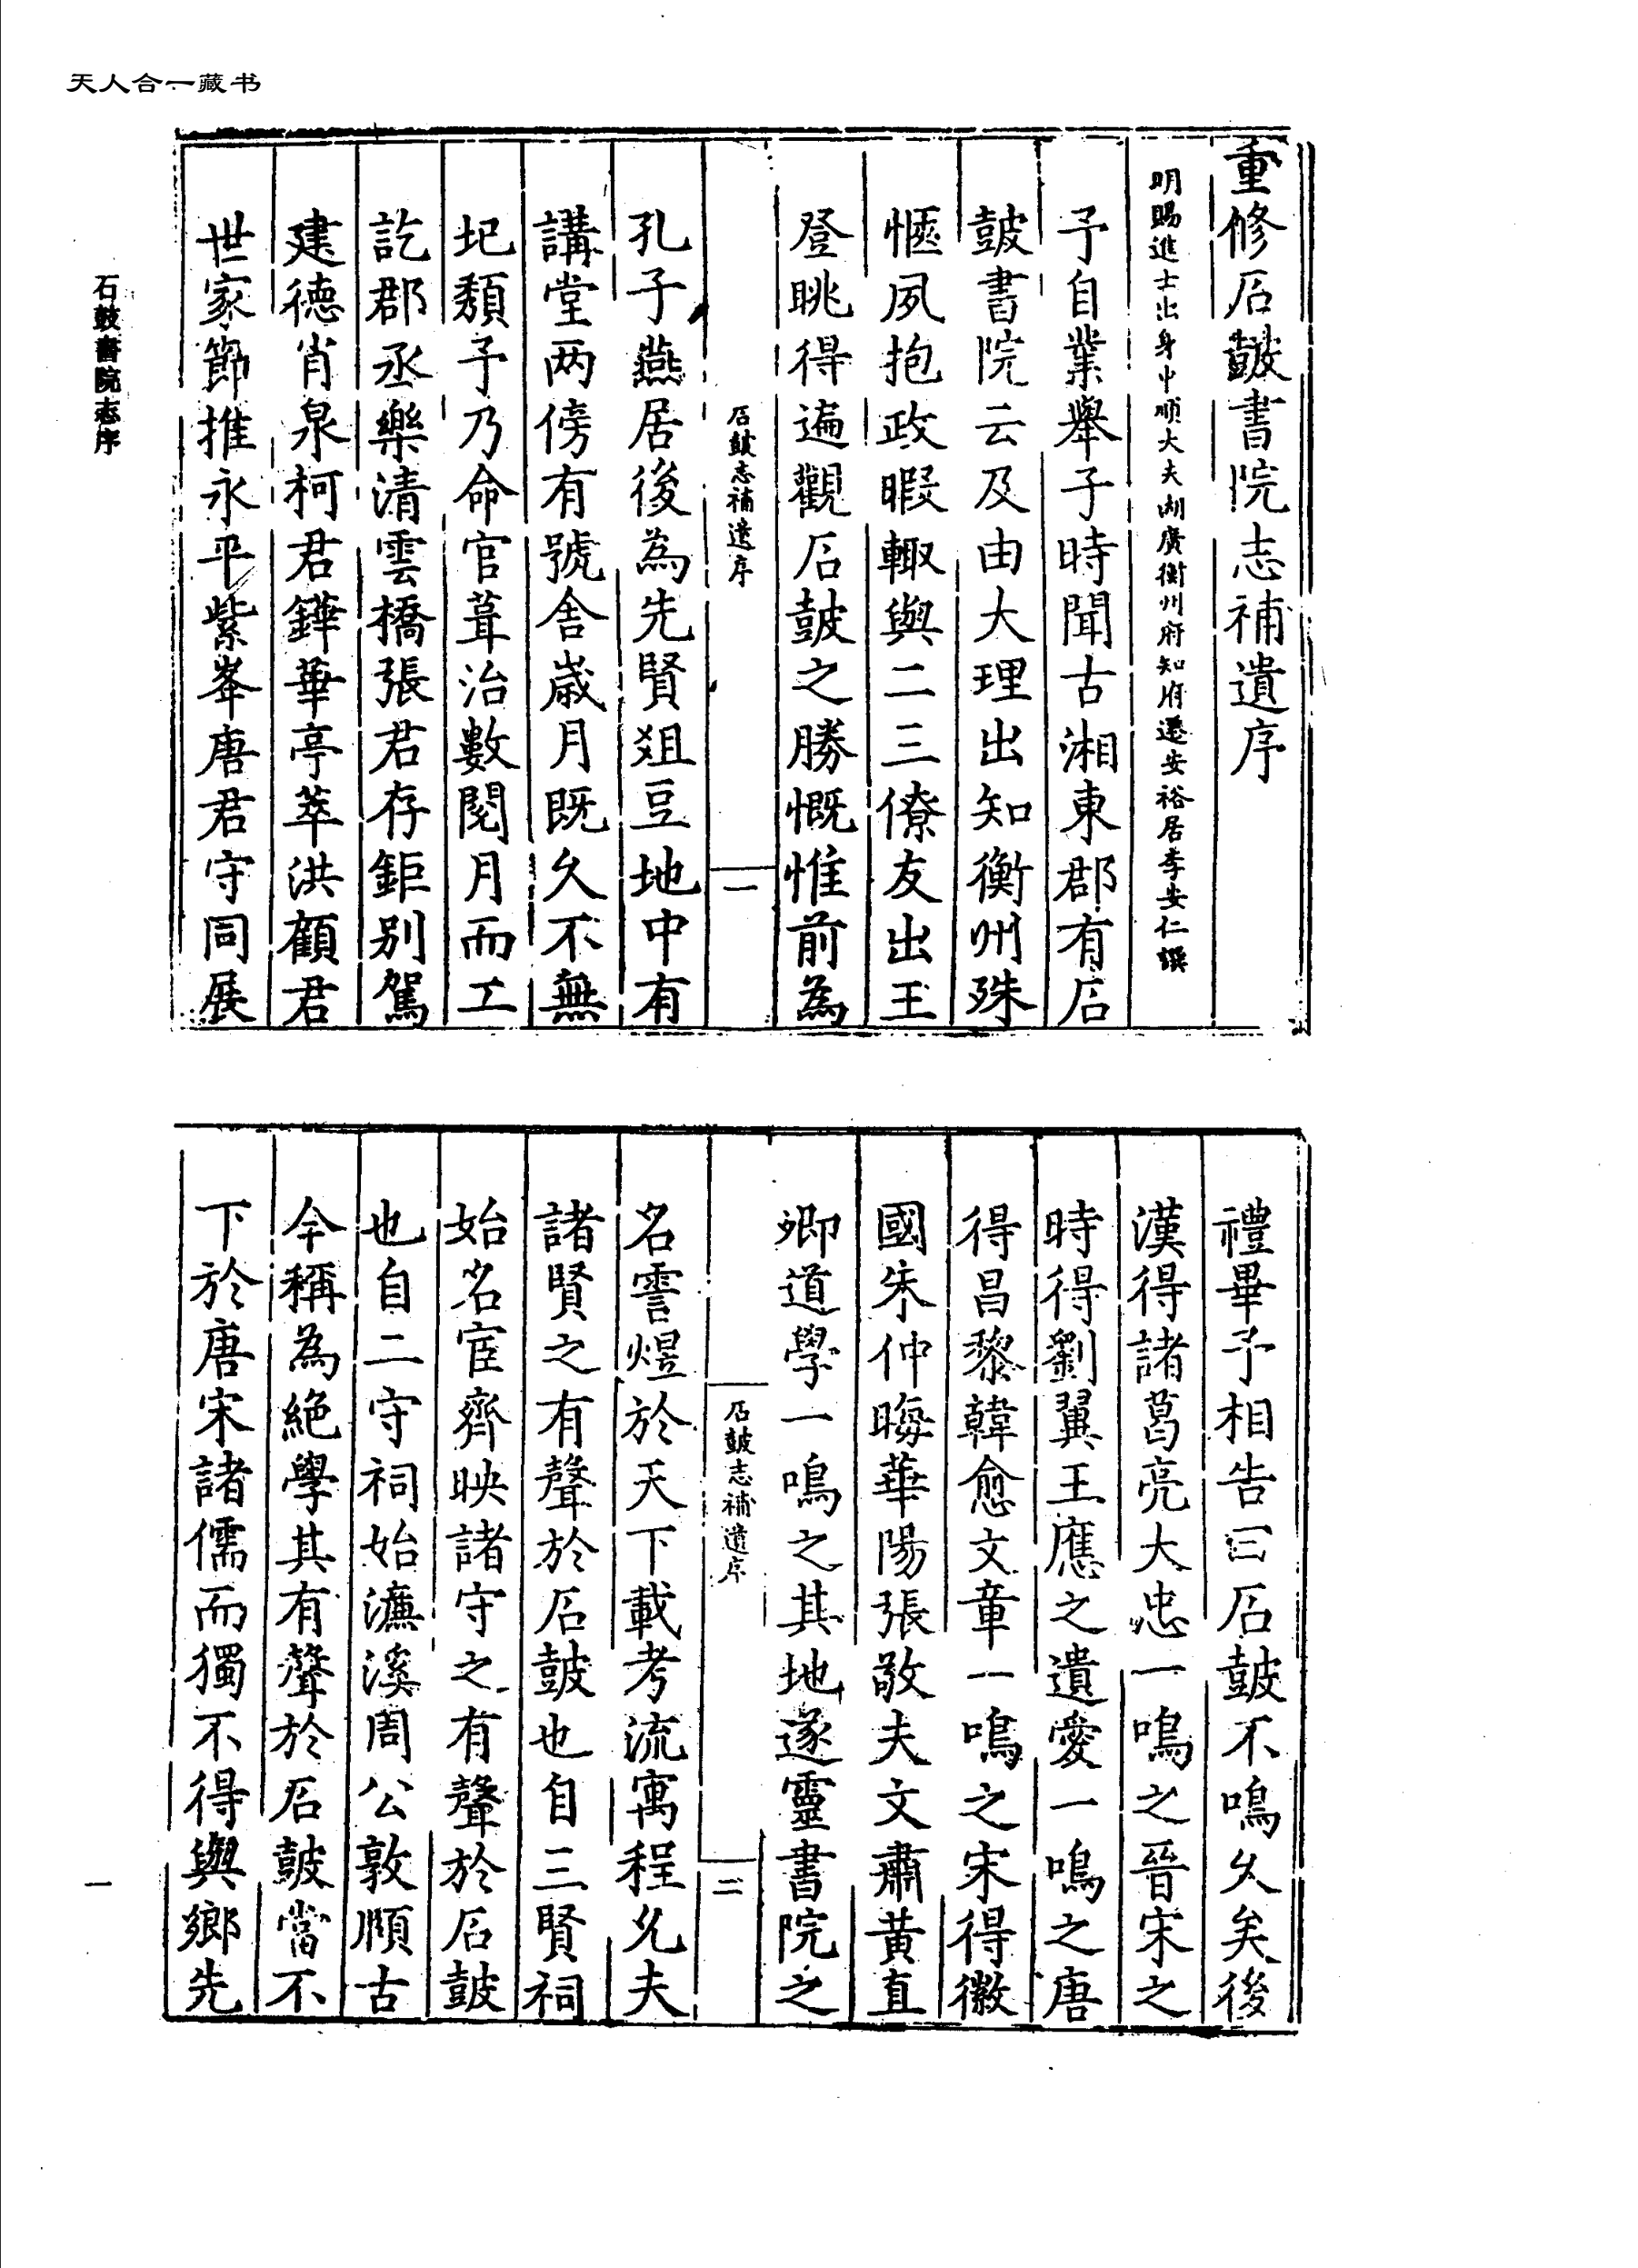 天人合一藏书
重修石鼓書院志補遺序
明賜進士出身中順大夫湖廣衡州府知府遷安裕居李安仁撰
予自業舉子時聞古湘東郡有石
鼓書院云及由大理出知衡州殊
愜夙抱政暇輙與二三僚友出王
登眺得遍觀石鼓之勝慨惟前為
石鼓志補遺序
一
孔子燕居後為先賢爼豆地中有
講堂两傍有號舍歲月既久不無
圮頹予乃命官葺治數閱月而工
訖郡丞樂清雲橋張君存鉅别駕
建德肖泉柯君鏵華亭萃洪顧君
世家節推永平紫峯唐君守同展
石鼓書院志序
禮畢予相告曰石鼓不鳴久矣後
漢得諸葛亮大忠一鳴之晉宋之
時得劉翼王應之遺愛一鳴之唐
得昌黎韓愈文章一鳴之宋得徽
國朱仲晦華陽張敬夫文肅黃直
卿道學一鳴之其地遂靈書院之
石鼓志補遺序
三
名霅煜於天下載考流寓程允夫
諸賢之有聲於石鼓也自三賢祠
始名宦齊映諸守之有聲於石鼓
也自二守祠始濂溪周公敦頤古
今稱為絕學其有聲於石鼓當不
下於唐宋諸儒而獨不得與鄉先
一